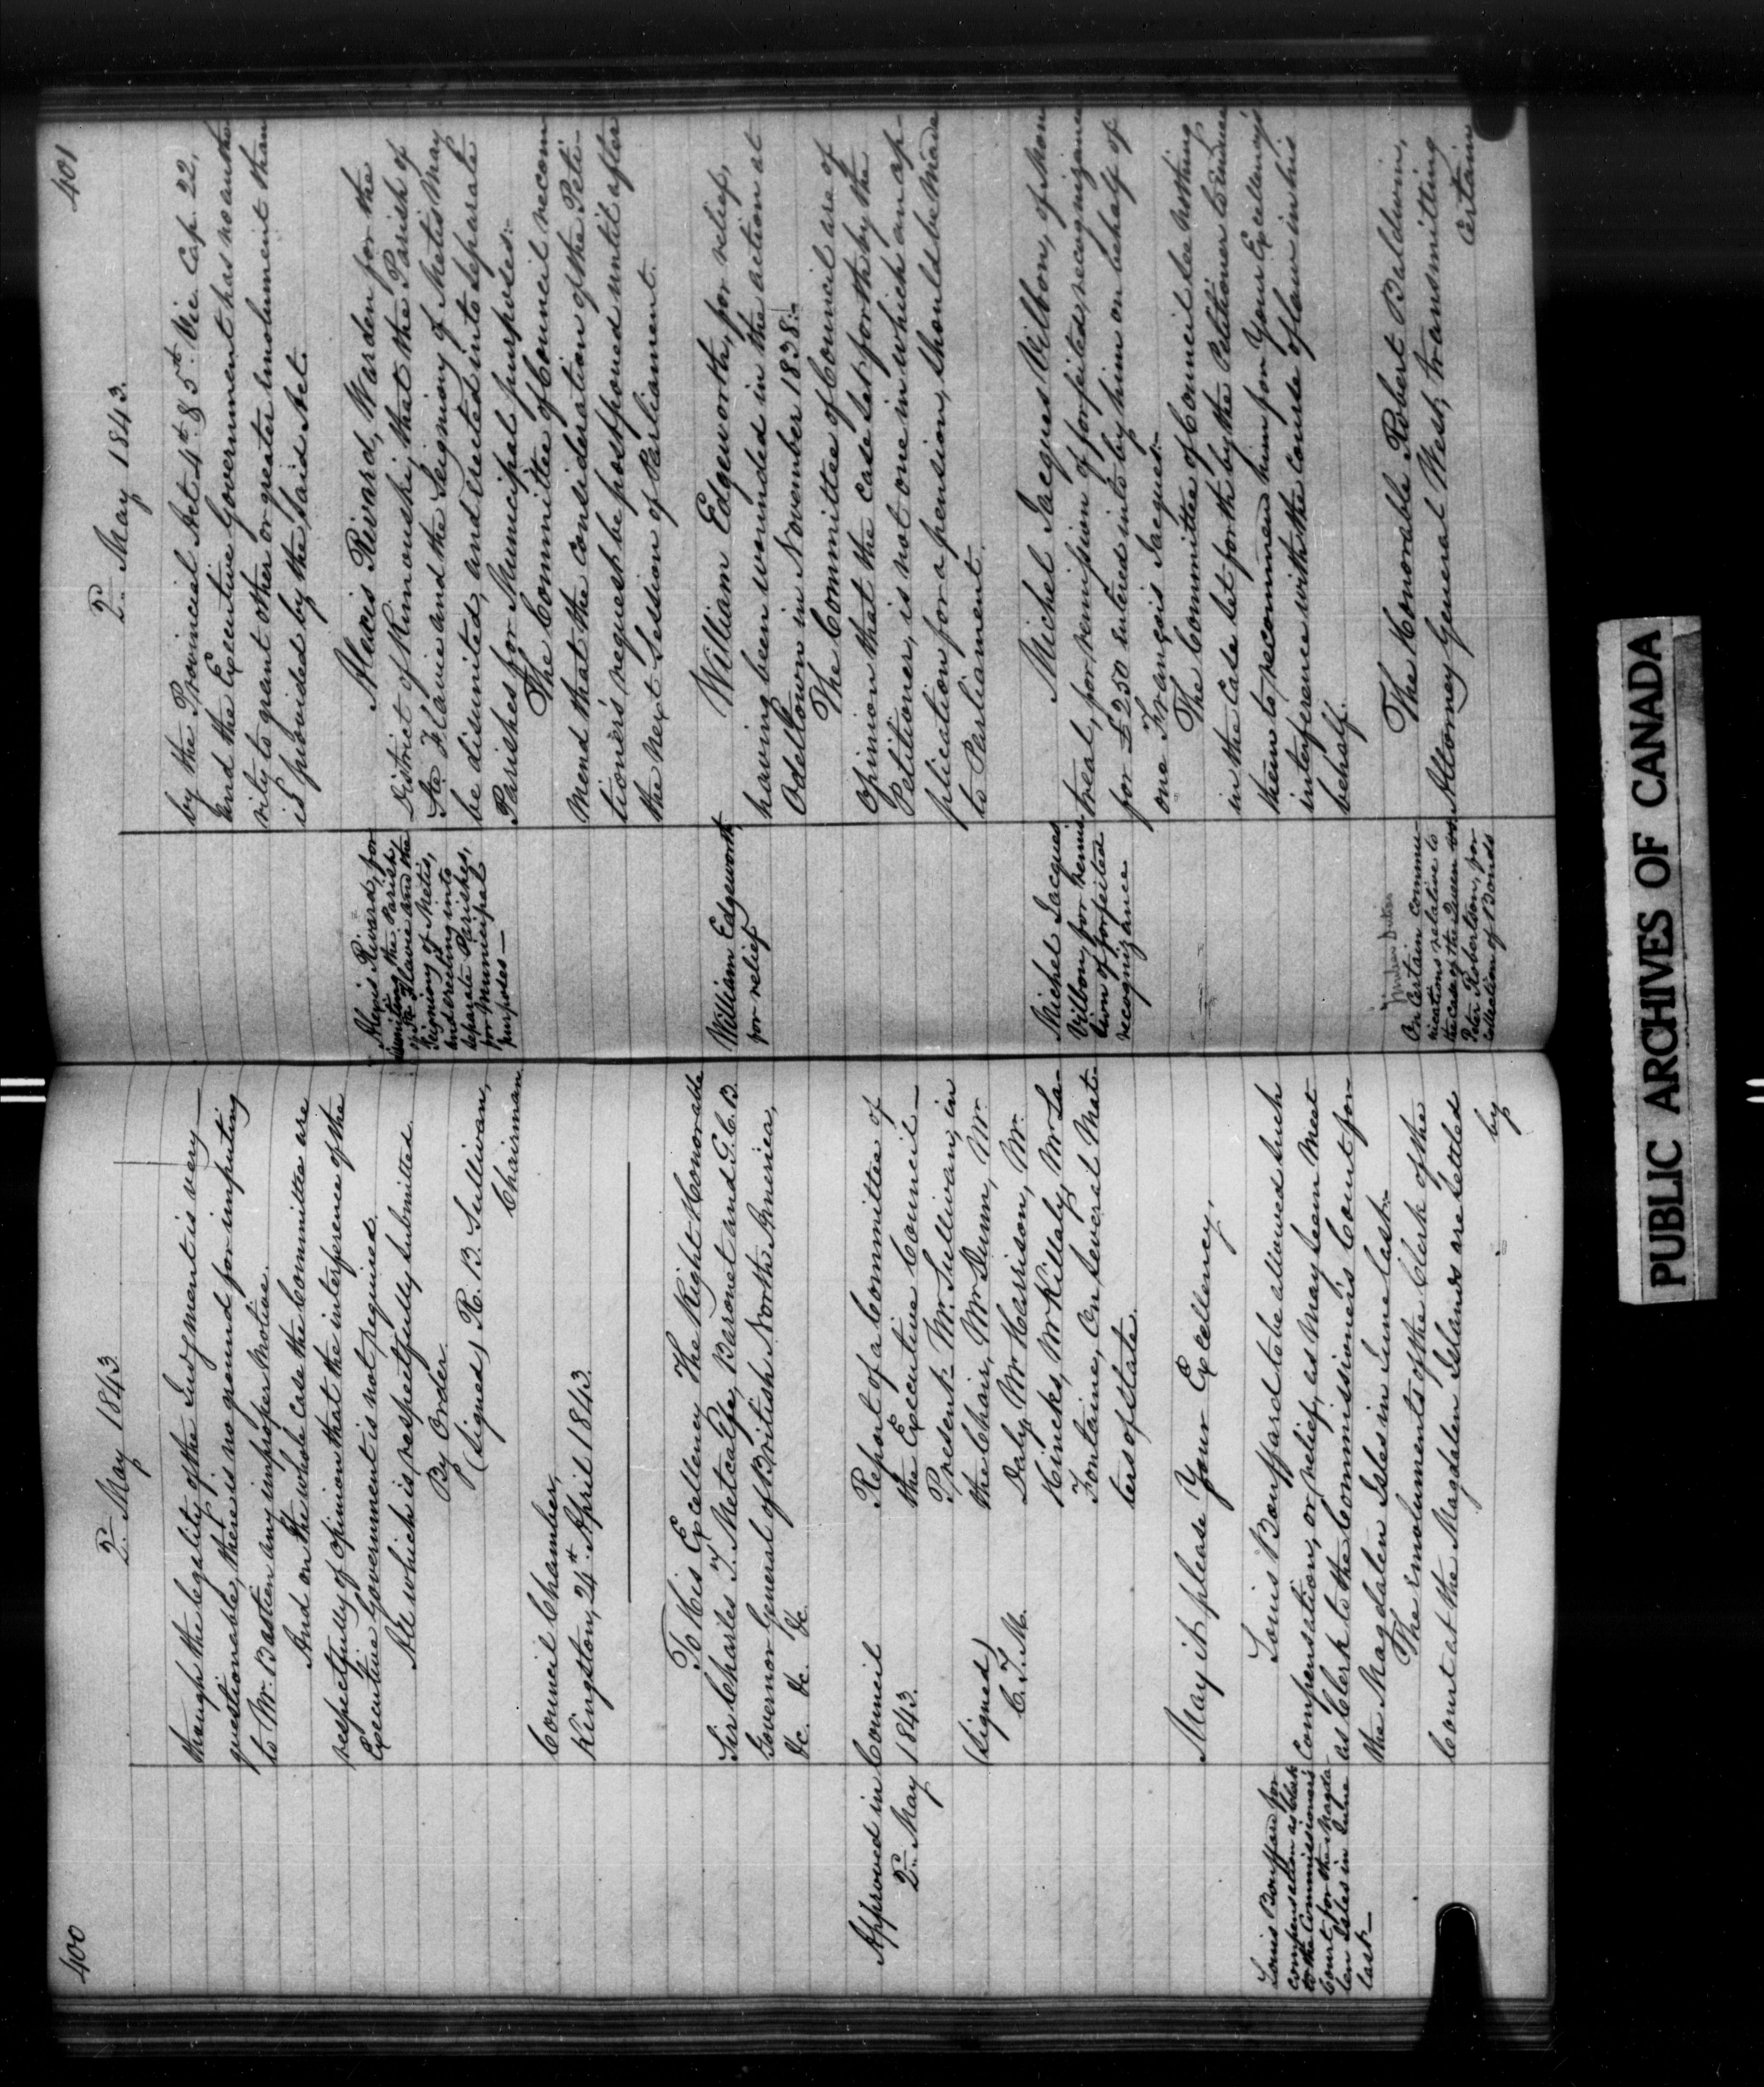 400
2d. May 1843.
though the legality of the Judgment is very
questionable, there is no ground for imputing
to Mr. Bastien any improper motive.
And on the whole case the Committee are
respectfully of opinion that the interference of the
Executive Government is not required.
All which is respectfully submitted.
By Order.
(Signed) R. B. Sullivan,
Chairman
Council Chamber,
Kingston, 24th. April 1843.
To His Excellency The Right Honorable
Sir Charles T. Metcalfe, Baronet and G.C.B.
Governor General of British North America,
&c. &c. &c.
Approved in Council
2d. May 1843.
(Signed)
C. T. M.
Report of a Committee of
the Executive Council—
Present: Mr. Sullivan, in
the Chair, Mr Dunn, Mr.
Daly, Mr Harrison, Mr.
Hincks, Mr Killaly, Mr La-
Fontaine, On several Mat-
ters of State.
May it please Your Excellency,
Louis Bouffard for
compensation as Clerk
to the Commissioners
Court for the Magda-
len Isles in June
last—
Louis Bouffard to be allowed such
Compensation, or relief, as may seem meet
as Clerk to the Commissioner's Court for
the Magdalen Isles in June last:—
The emoluments of the Clerk of the
Court at the Magdalen Islands are settled
by
401
2d. May 1843.
by the Provincial Act 4th. & 5th. Vic. Cap. 22,
and the Executive Government has no autho-
rity to grant other or greater emolument than
is provided by the said Act.
Alexis Rivard, for
disuniting the Parish
of Ste Flavie and the
Seigniory of Metis,
and erecting into
separate Parishes,
for Municipal
purposes—
Alexis Rivard, Warden for the
District of Rimouski, that the Parish of
Ste Flavie and the Seigniory of Metis may
be disunited, and erected into separate
Parishes for Municipal purposes:—
The Committee of Council recom-
mend that the consideration of the Peti-
tioner's request be postponed until after
the next Session of Parliament.
William Edgeworth,
for relief
William Edgeworth, for relief,
having been wounded in the action at
Odelltown in November 1838:—
The Committee of Council are of
opinion that the case set forth by the
Petitioner, is not one in which an ap-
plication for a pension, should be made
to Parliament.
Michel Jacques
Vilbon, for remis-
sion of forfeited
recognizance
Michel Jacques Vilbon, of Mon-
treal, for remission of forfeited recognizance
for £250 entered into by him on behalf of
one François Jacques:—
The Committee of Council see nothing
in the Case set forth by the Petitioner to induce
them to recommend him for Your Excellency's
interference with the course of law in his
behalf.
On certain commu-
nications relative to
the case of the Queen vs.
Peter Robertson, for
collection of Bonds
The Honorable Robert Baldwin,
Attorney General West, transmitting
Certain
PUBLIC ARCHIVES OF CANADA